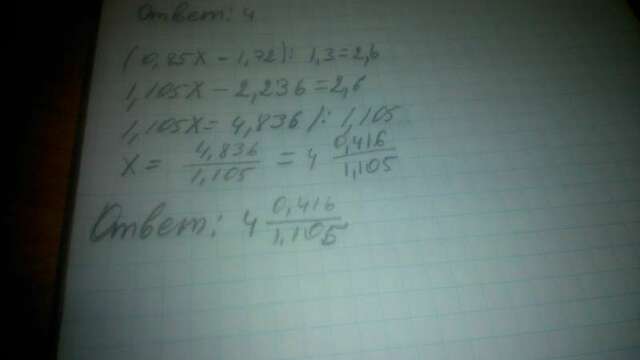 Ответ: 4
(0,85x - 1,72) : 1,3 = 2,6
1,105x - 2,236 = 2,6
1,105x = 4,836 /: 1,105
x = 4,836/1,105 = 4 0,416/1,105
Ответ: 4 0,416/1,105